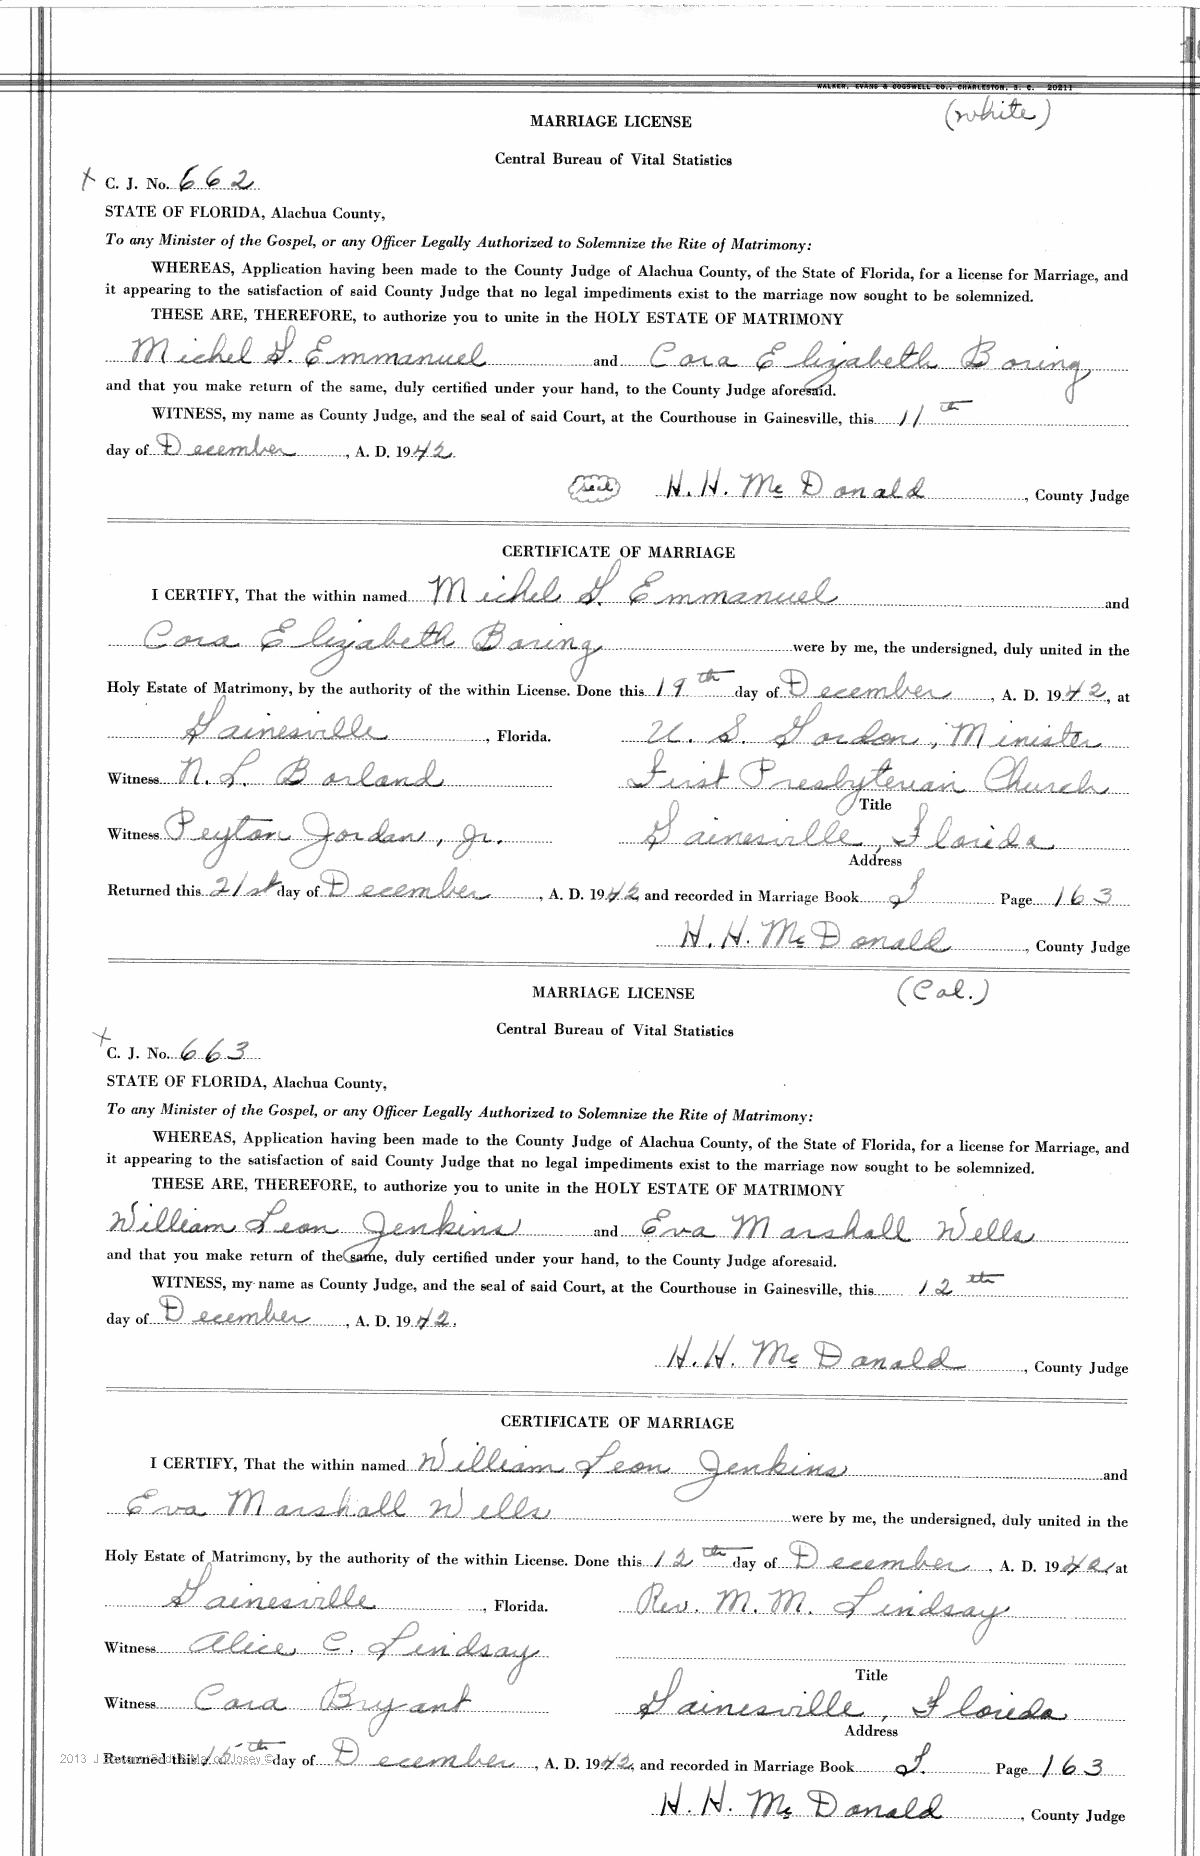 WALKER, EVANS & COGSWELL CO., CHARLESTON, S. C. 20211
(white)
MARRIAGE LICENSE
Central Bureau of Vital Statistics
X C. J. No. 662
STATE OF FLORIDA, Alachua County,
To any Minister of the Gospel, or any Officer Legally Authorized to Solemnize the Rite of Matrimony:
WHEREAS, Application having been made to the County Judge of Alachua County, of the State of Florida, for a license for Marriage, and
it appearing to the satisfaction of said County Judge that no legal impediments exist to the marriage now sought to be solemnized.
THESE ARE, THEREFORE, to authorize you to unite in the HOLY ESTATE OF MATRIMONY
Michel G. Emmanuel and Cora Elizabeth Boring
and that you make return of the same, duly certified under your hand, to the County Judge aforesaid.
WITNESS, my name as County Judge, and the seal of said Court, at the Courthouse in Gainesville, this 11th
day of December, A. D. 1942.
seal H. H. McDonald, County Judge
CERTIFICATE OF MARRIAGE
I CERTIFY, That the within named Michel G. Emmanuel and
Cora Elizabeth Boring were by me, the undersigned, duly united in the
Holy Estate of Matrimony, by the authority of the within License. Done this 19th day of December, A. D. 1942, at
Gainesville, Florida. U. S. Gordon, Minister
Witness N. L. Borland First Presbyterian Church
Title
Witness Peyton Jordan, Jr. Gainesville, Florida
Address
Returned this 21st day of December, A. D. 1942, and recorded in Marriage Book Page 163
H. H. McDonald, County Judge
MARRIAGE LICENSE (Col.)
Central Bureau of Vital Statistics
X C. J. No. 663
STATE OF FLORIDA, Alachua County,
To any Minister of the Gospel, or any Officer Legally Authorized to Solemnize the Rite of Matrimony:
WHEREAS, Application having been made to the County Judge of Alachua County, of the State of Florida, for a license for Marriage, and
it appearing to the satisfaction of said County Judge that no legal impediments exist to the marriage now sought to be solemnized.
THESE ARE, THEREFORE, to authorize you to unite in the HOLY ESTATE OF MATRIMONY
William Leon Jenkins and Eva Marshall Wells
and that you make return of the same, duly certified under your hand, to the County Judge aforesaid.
WITNESS, my name as County Judge, and the seal of said Court, at the Courthouse in Gainesville, this 12th
day of December, A. D. 1942.
H. H. McDonald, County Judge
CERTIFICATE OF MARRIAGE
I CERTIFY, That the within named William Leon Jenkins and
Eva Marshall Wells were by me, the undersigned, duly united in the
Holy Estate of Matrimony, by the authority of the within License. Done this 12th day of December, A. D. 1942, at
Gainesville, Florida. Rev. M. M. Lindsay
Witness Alice C. Lindsay
Title
Witness Cora Bryant Gainesville, Florida
Address
Returned this 15th day of December, A. D. 1942, and recorded in Marriage Book Page 163
2013 J
H. H. McDonald, County Judge